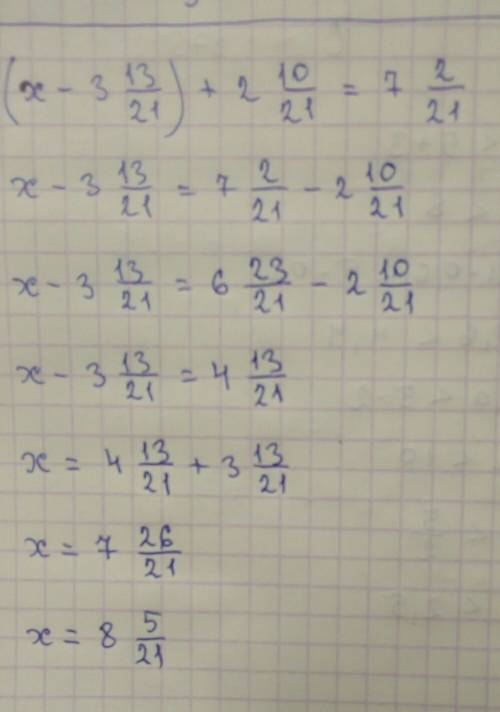 (x - 3 13/21) + 2 10/21 = 7 2/21
x - 3 13/21 = 7 2/21 - 2 10/21
x - 3 13/21 = 6 23/21 - 2 10/21
x - 3 13/21 = 4 13/21
x = 4 13/21 + 3 13/21
x = 7 26/21
x = 8 5/21